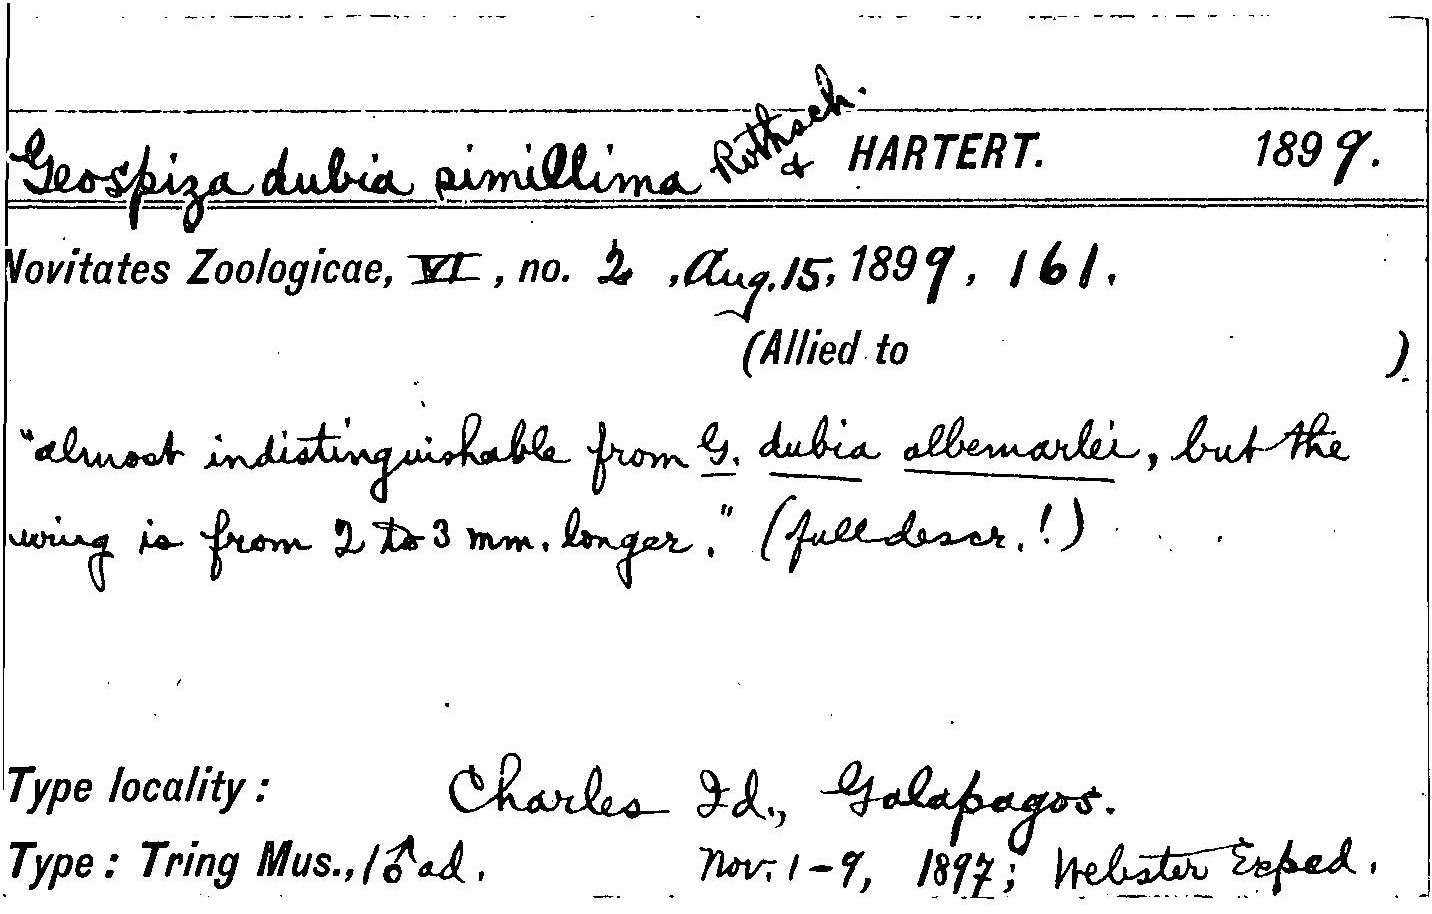 Geospiza dubia simillima Rothsch. & HARTERT. 1899.
Novitates Zoologicae, VI, no. 2, Aug. 15, 1899, 161.
(Allied to )
"almost indistinguishable from G. dubia albemarlei, but the
wing is from 2 to 3 mm. longer." (full descr.!)
Type locality: Charles Id., Galapagos.
Type: Tring Mus., 1♂ad. Nov. 1-9, 1897; Webster Exped.